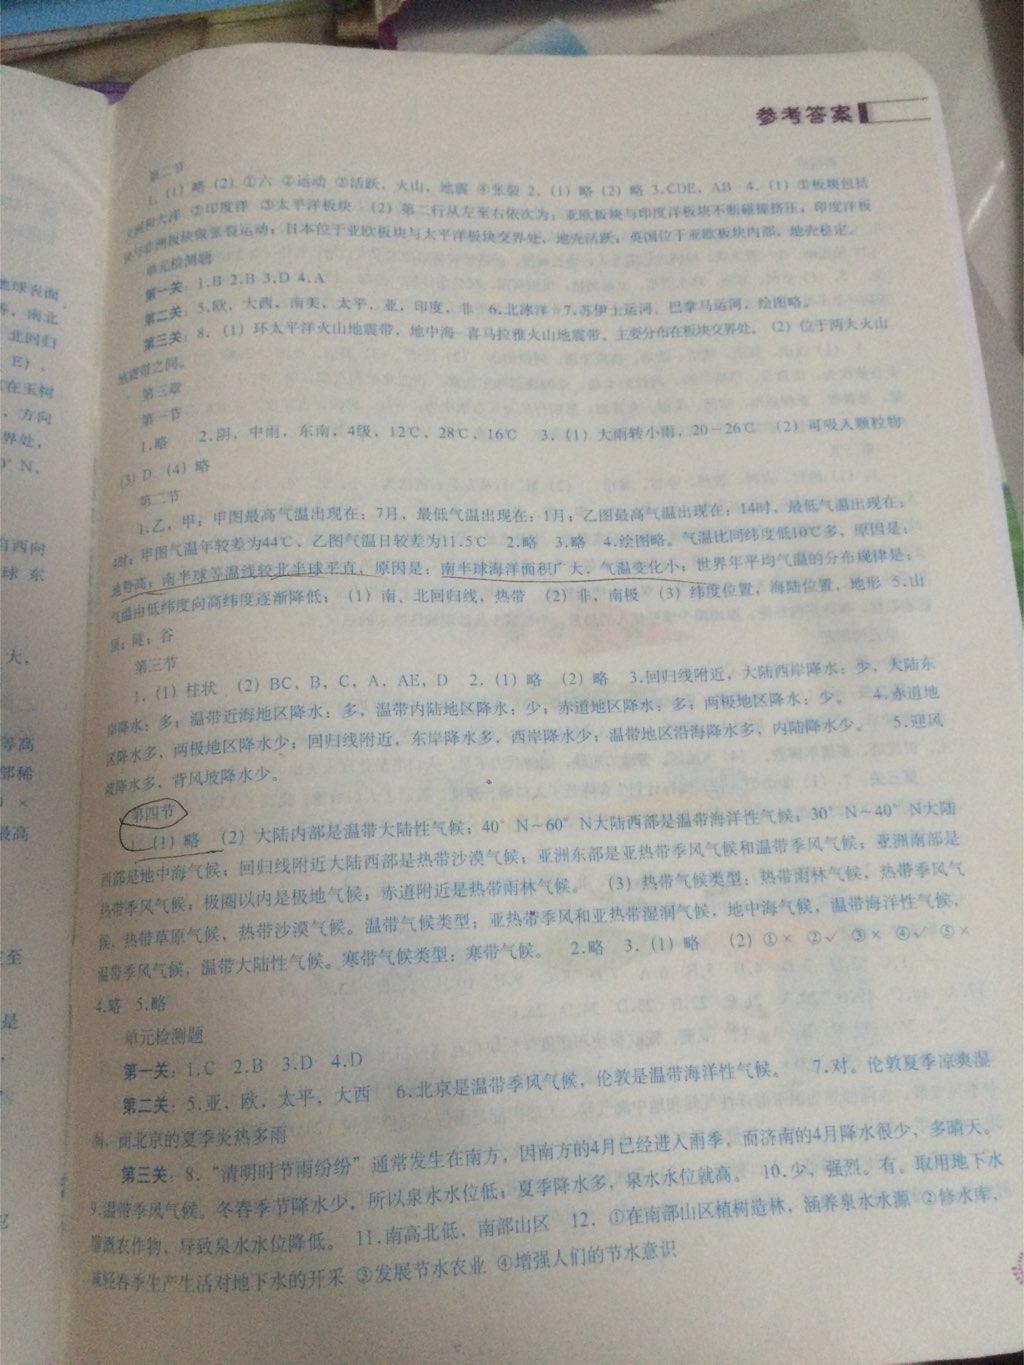 参考答案
第二节
1. (1) 略 (2) ①六 ②运动 ③活跃，火山，地震 ④张裂 2. (1) 略 (2) 略 3.CDE，AB 4. (1) ①板块包括
大洲和大洋 ②印度洋 ③太平洋板块 (2) 第二行从左至右依次为：亚欧板块与印度洋板块不断碰撞挤压；印度洋板
块与非洲板块做张裂运动；日本位于亚欧板块与太平洋板块交界处，地壳活跃；英国位于亚欧板块内部，地壳稳定。
单元检测题
第一关：1.B 2.B 3.D 4.A
第二关：5.欧，大西，南美，太平，亚，印度，非 6.北冰洋 7.苏伊士运河，巴拿马运河，绘图略。
第三关：8. (1) 环太平洋火山地震带，地中海—喜马拉雅火山地震带。主要分布在板块交界处。 (2) 位于两大火山
地震带之间。
第三章
第一节
1.略 2.阴，中雨，东南，4级，12℃，28℃，16℃ 3. (1) 大雨转小雨，20－26℃ (2) 可吸入颗粒物
(3) D (4) 略
第二节
1.乙，甲；甲图最高气温出现在：7月，最低气温出现在：1月；乙图最高气温出现在：14时，最低气温出现在：
4时；甲图气温年较差为44℃，乙图气温日较差为11.5℃ 2.略 3.略 4.绘图略。气温比同纬度低10℃多，原因是：
地势高；南半球等温线较北半球平直，原因是：南半球海洋面积广大，气温变化小；世界年平均气温的分布规律是：
气温由低纬度向高纬度逐渐降低； (1) 南、北回归线，热带 (2) 非，南极 (3) 纬度位置，海陆位置，地形 5.山
顶；陡；谷
第三节
1. (1) 柱状 (2) BC，B，C，A，AE，D 2. (1) 略 (2) 略 3.回归线附近，大陆西岸降水：少，大陆东
岸降水：多；温带近海地区降水：多，温带内陆地区降水：少；赤道地区降水：多；两极地区降水：少。 4.赤道地
区降水多，两极地区降水少；回归线附近，东岸降水多，西岸降水少；温带地区沿海降水多，内陆降水少。 5.迎风
坡降水多，背风坡降水少。
第四节
1. (1) 略 (2) 大陆内部是温带大陆性气候；40°N~60°N大陆西部是温带海洋性气候；30°N~40°N大陆
西部是地中海气候；回归线附近大陆西部是热带沙漠气候；亚洲东部是亚热带季风气候和温带季风气候；亚洲南部是
热带季风气候；极圈以内是极地气候；赤道附近是热带雨林气候。 (3) 热带气候类型：热带雨林气候，热带季风气
候，热带草原气候，热带沙漠气候。温带气候类型：亚热带季风和亚热带湿润气候，地中海气候，温带海洋性气候，
温带季风气候，温带大陆性气候。寒带气候类型：寒带气候。 2.略 3. (1) 略 (2) ①× ②✓ ③× ④✓ ⑤×
4.略 5.略
单元检测题
第一关：1.C 2.B 3.D 4.D
第二关：5.亚，欧，太平，大西 6.北京是温带季风气候，伦敦是温带海洋性气候。 7.对。伦敦夏季凉爽湿
润，而北京的夏季炎热多雨
第三关：8.“清明时节雨纷纷”通常发生在南方，因南方的4月已经进入雨季，而济南的4月降水很少，多晴天。
9.温带季风气候。冬春季节降水少，所以泉水水位低；夏季降水多，泉水水位就高。 10.少，强烈。有。取用地下水
灌溉农作物，导致泉水水位降低。 11.南高北低，南部山区 12. ①在南部山区植树造林，涵养泉水水源 ②修水库，
减轻春季生产生活对地下水的开采 ③发展节水农业 ④增强人们的节水意识